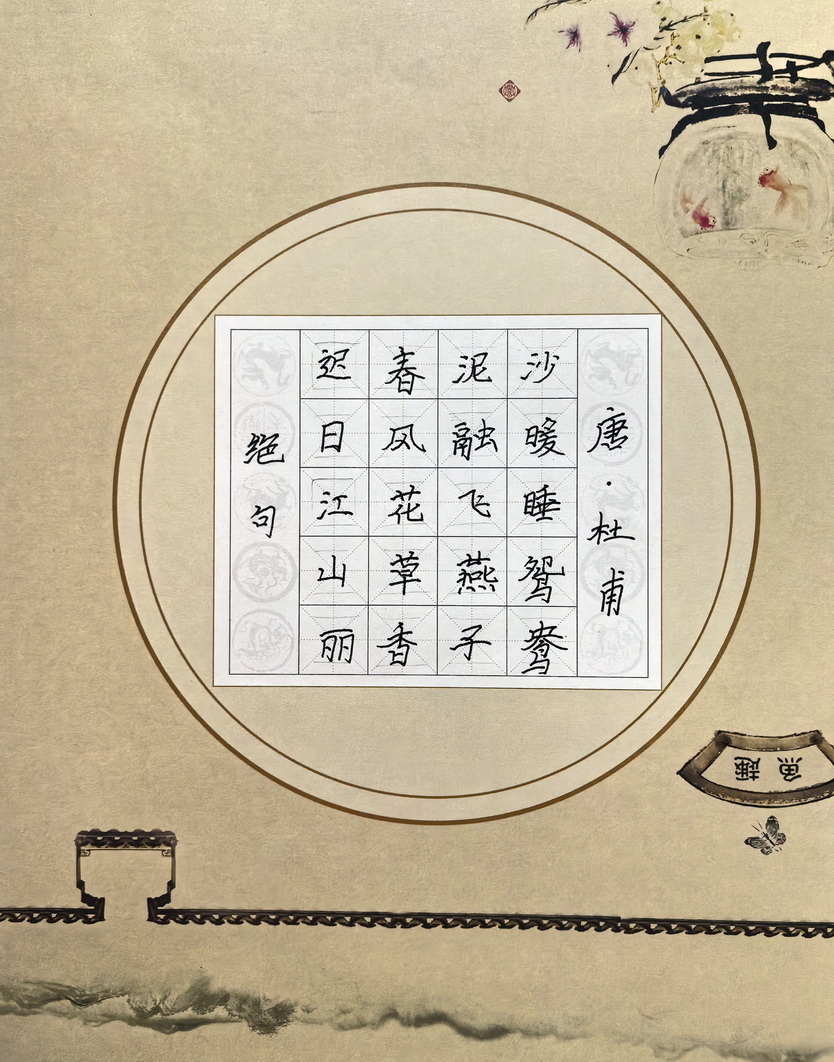 绝句
迟日江山丽
春风花草香
泥融飞燕子
沙暖睡鸳鸯
唐·杜甫
魚趣